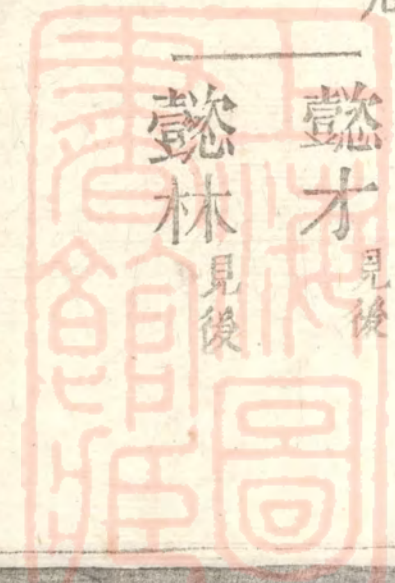 懿才見後
懿林見後